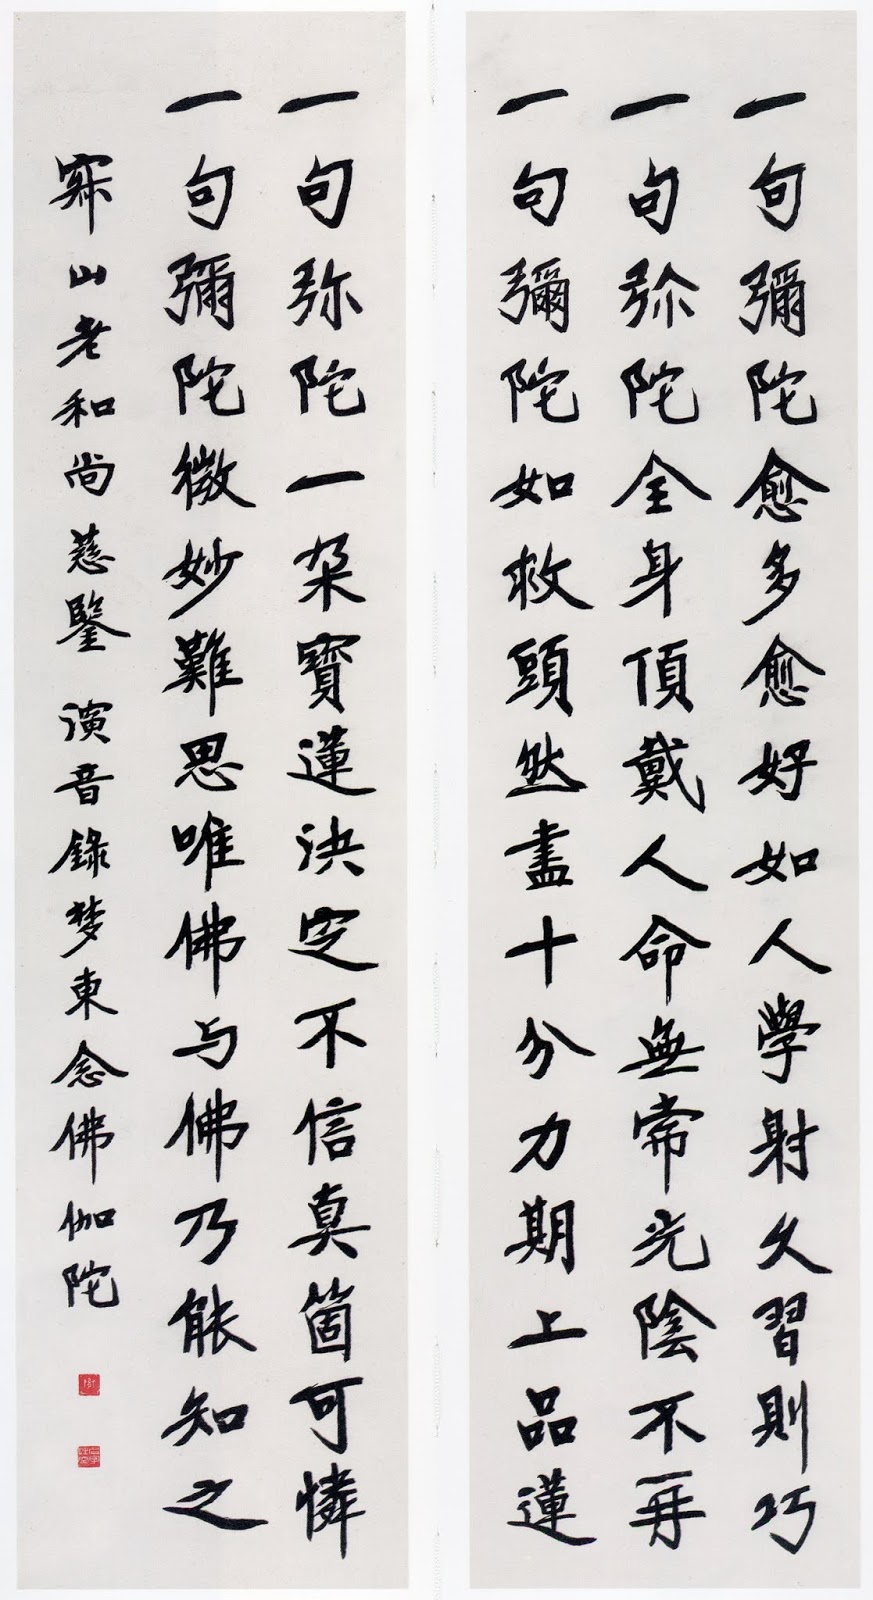 一句彌陀愈多愈好如人學射久習則巧
一句弥陀全身頂戴人命無常光陰不再
一句彌陀如救頭然盡十分力期上品蓮
一句弥陀一朶寶蓮決定不信真箇可憐
一句彌陀微妙難思唯佛与佛乃能知之
寂山老和尚慈鑒 演音錄梦東念佛伽陀